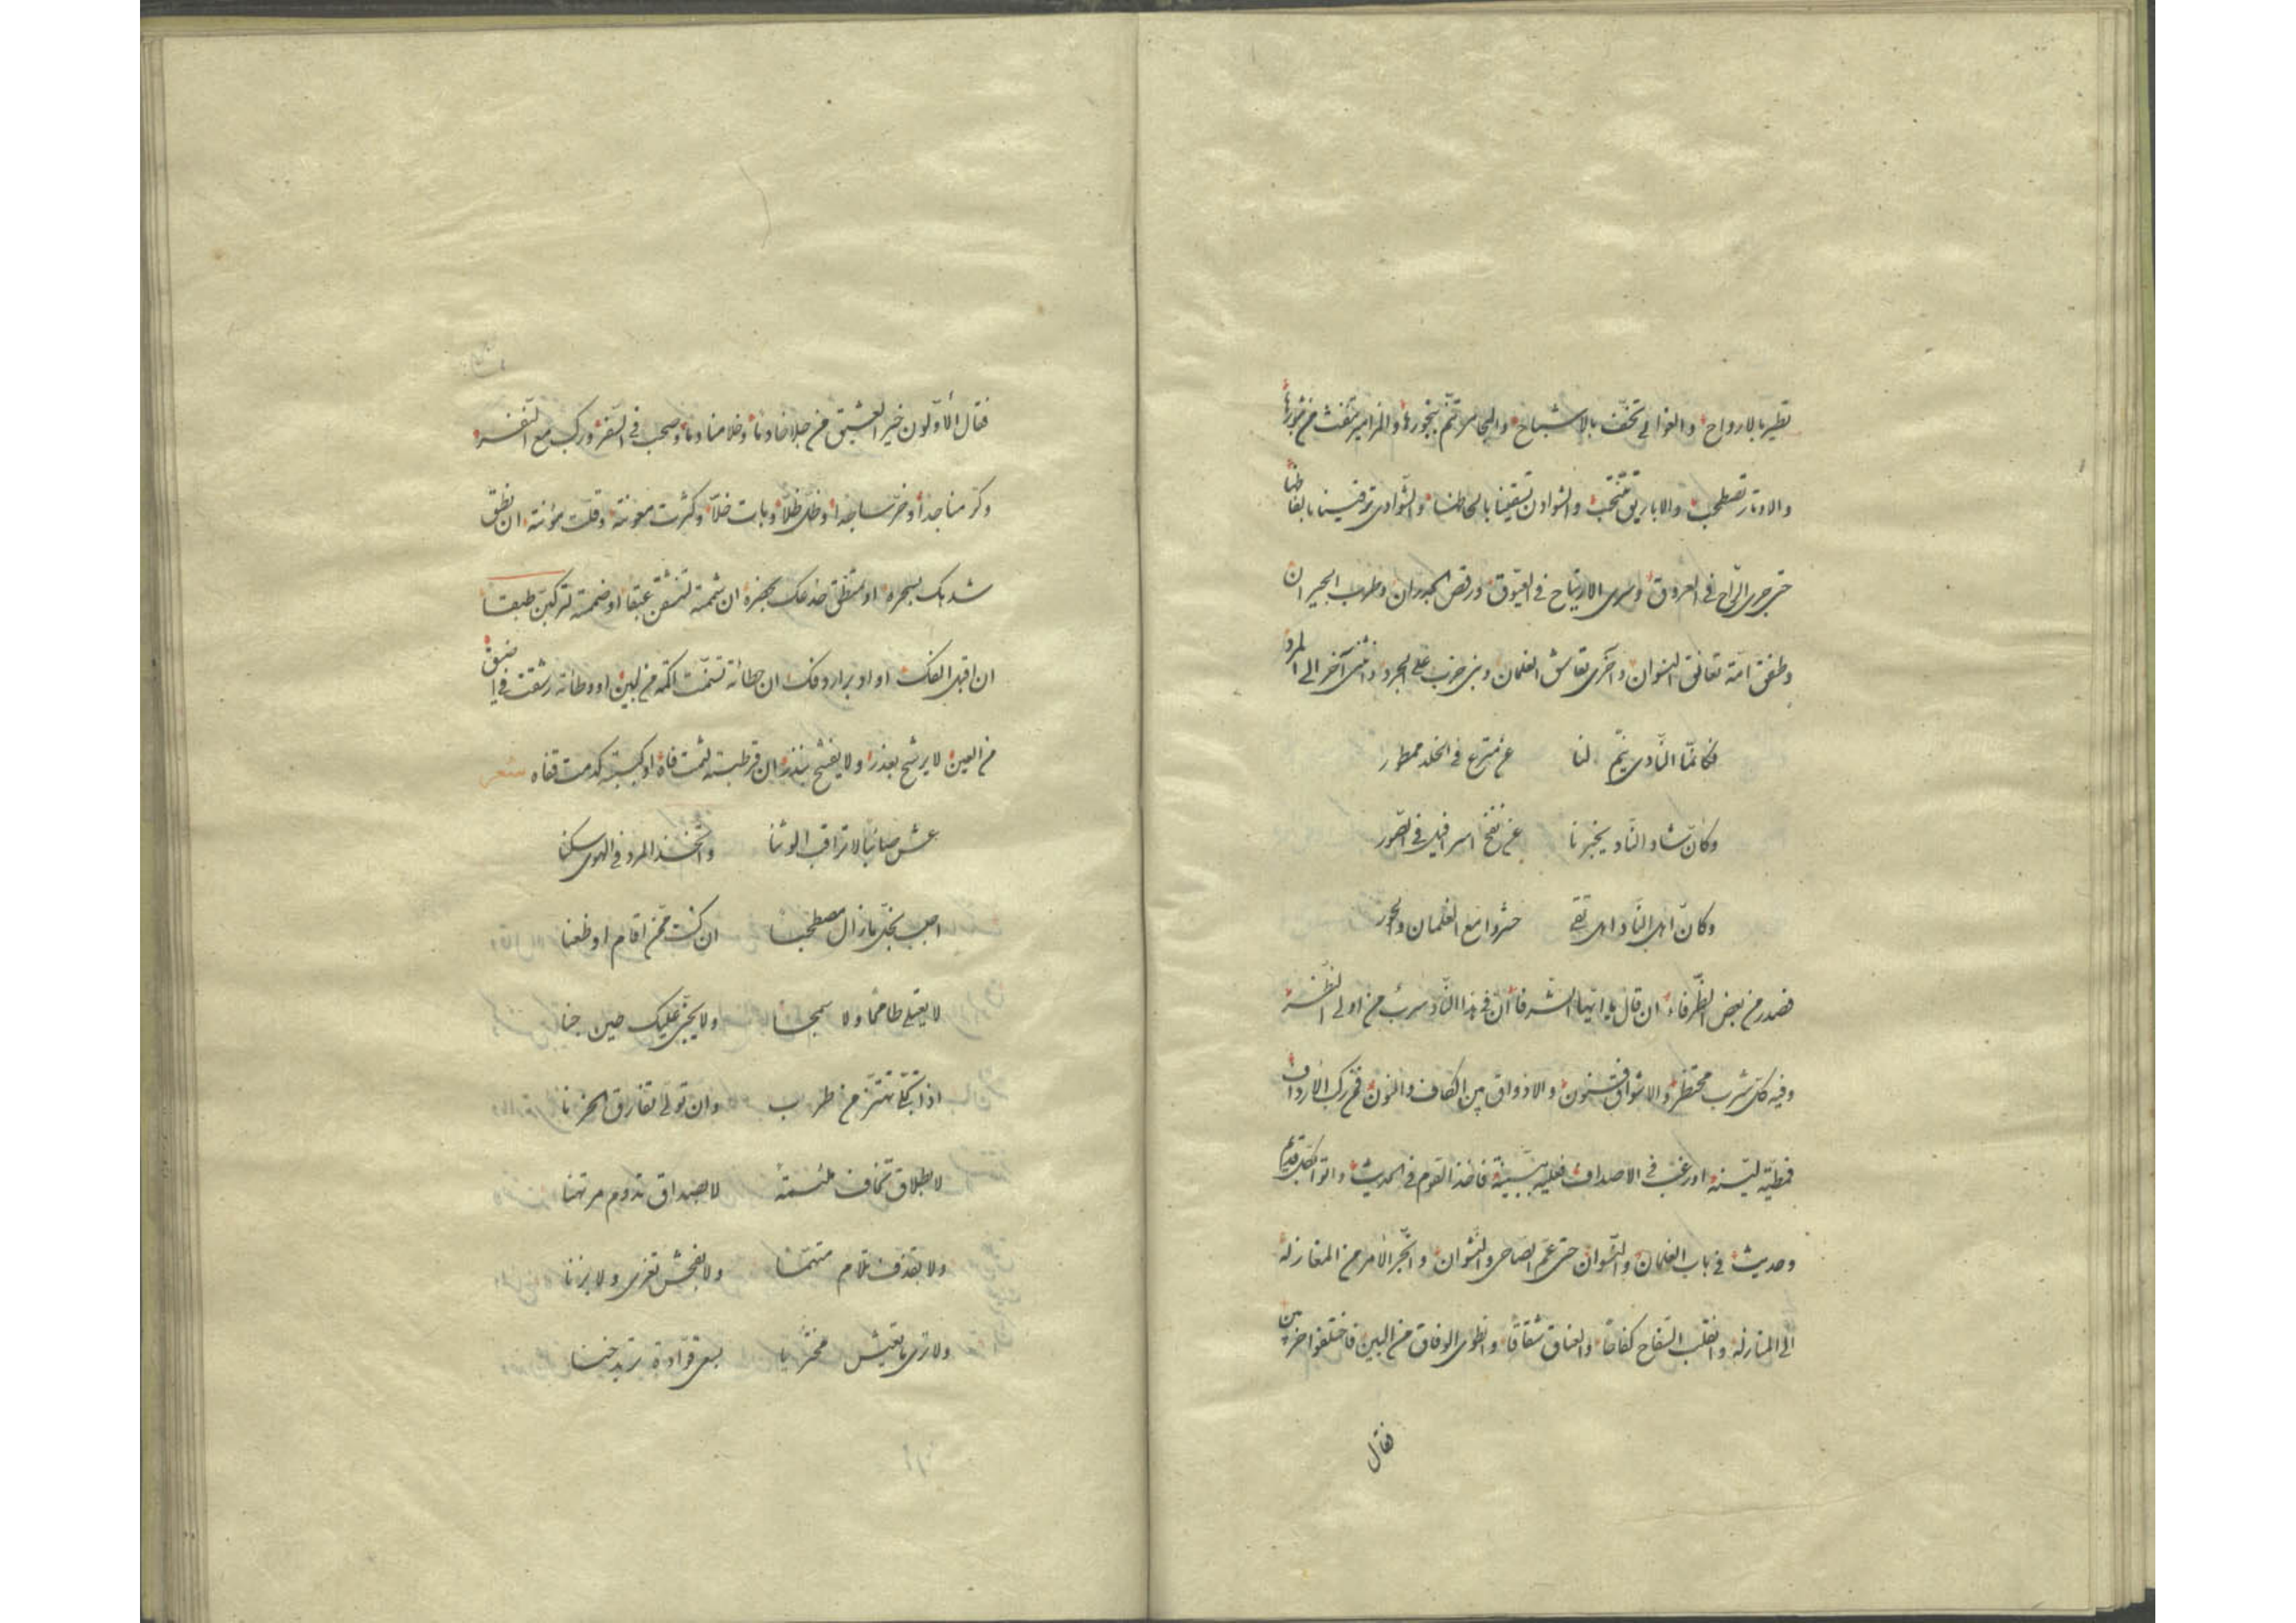 تطير بالارواح والغوالي تخفف بالاشباح والمجامر تنم ببخورها والمزامير تنفث من
والاوتار تصطحب والاباريق تنتحب والشوادن تسقينا بالحاظها والشوادي ترقينا بالفاظها
حتى جرى الراح في العروق وسرى الارتياح في العيوق ورقص الجدران وطرب الجيران
وطفق امة تعانق النسوان واخرى الغلمان وبنى ضرب على الجرد وانثنى آخر الى المرد
فكانما النادي ينم لنا عن مترع في الخلد ممطور
وكان شاد الناد يخبرنا عن نفخ اسرافيل في الصور
وكان اهل الناد اهل تقى حشروا مع الغلمان والحور
فصدر من بعض الظرفاء ان قال يا ايها الشرفا ان في هذا الناد سرب من اولى
وفيه كل شرب محتظر والاشواق فنون والاذواق بين الكاف والنون فمن ركب الارداف
فمطية لينة او رغب في الاصداف فعليه ببينة فاخذ القوم في الحديث والتواكل قديم
وحديث في باب الغلمان والنسوان حتى عم الصاحي والنشوان وانجر الامر من المغازلة
الى المنازلة وانقلب السفاح كفاحا والعناق شقاقا وانطوى الوفاق من البين فاختلفوا حزبين
فقال
فقال الاولون خير العشيق من جلا خادنا وخلا منادنا وصحب في السفر وركب مع النفر
وكر مناجدا وخر ساجدا وظل ظلا وبات خلا وكثرت معونته وقلت مؤنته ان نطق
شدهك بسحره او تمنطق خدعك بخصره ان شممته تنشقن عبقا او ضممته لتركبن طبقا
ان اقبل افكك او ادبر اردفك ان حطاته تسنمت اكمة من لبن او وطأته رشقت في اضيق
من العين لا يرشح بعذر ولا يفشح بنذر ان قرطبته لثمت فاه او كببته كدمت قفاه شعر
عش صابيا لا تراقب الوثنا واتخذ المرد في الهوى سكنا
اصحب بخل ما زال مصطحبا ان كنت ممن اقام او ظعنا
لا يقتلي طامحا ولا سمجا ولا يجنى عليك حين جنا
اذا تجلى تهتز من طرب وان تولى تفارق الحزنا
لا بطلاق تخاف ملئمة لا بصداق تدوم مرتهنا
ولا بقذف تلام متهما ولا بفحش تعزى ولا بزنا
ولا ترى بالعيش مختزيا بسعى قوادة تريد خنا